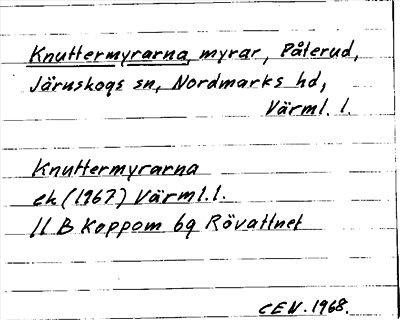 Knuttermyrarna, myrar, Påterud,
Järnskogs sn, Nordmarks hd,
Värml. l.
Knuttermyrarna
ek (1967) Värml.l.
11 B Koppom 6g Rövattnet
CEN. 1968.